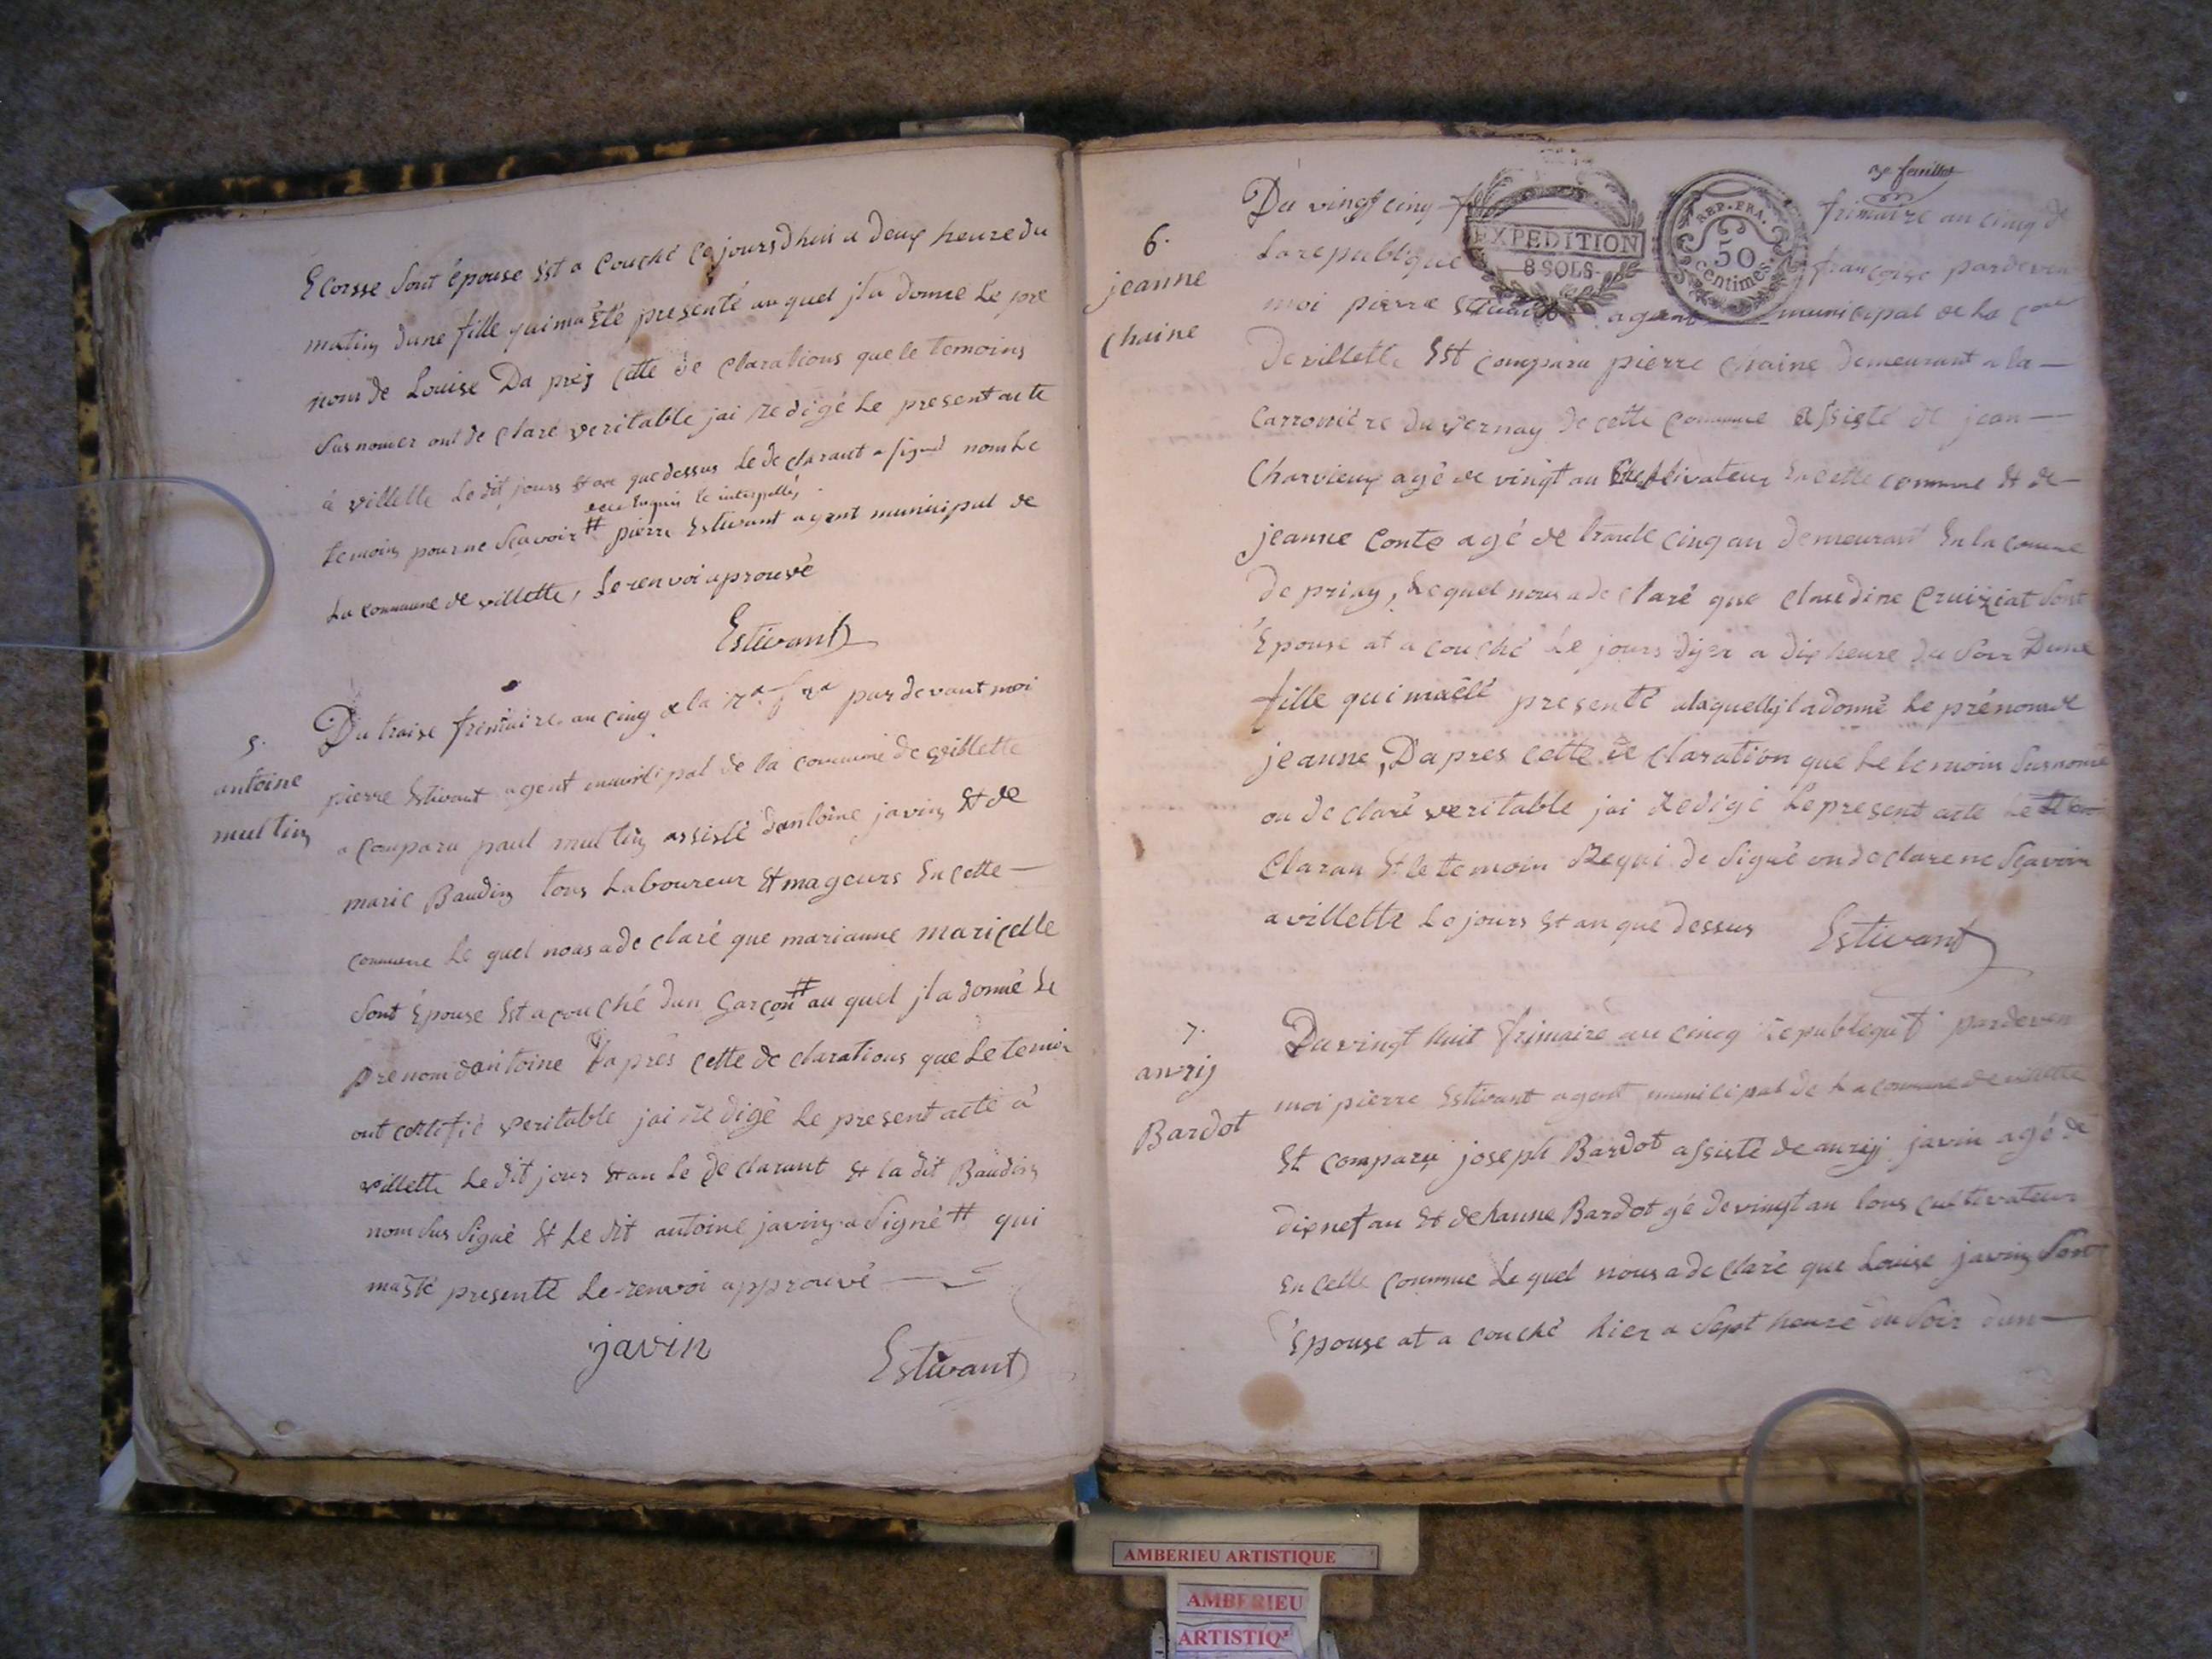 Ecorsse sont épouse est a couché ce jours dhui a deux heure du
matin dune fille qui ma été presenté au quel jl a donné le pre
nom de Louise Da prés cette de clarations que le temoins
sus nomer ont de claré veritable jai redigé le present acte
à villette le dit jours et an que dessus le de clarant a signé non le
temoins pour ne sçavoir # pierre Estivant agent municipal de
la commune de villette, le renvoi aprouvé
Estivant
5.
antoine
multin
Du traise frimaire an cinq de la par devant moi
pierre Estivant agent municipal de la commune de villette
a comparu paul multin assisté dantoine javin et de
marie Baudin tous laboureur et mageurs en cette —
commune le quel nous a de claré que marianne maricelle
sont épouse est a couché dun garçon # au quel jl a donné le
prenom dantoine Da prés cette de clarations que le temoin
ont certifié veritable jai redigé le present acte à
villette le dit jour et an le de clarant et la dit Baudin
nom sus signé et le dit antoine javin a signé # qui
ma été presenté le renvoi approuvé
javin
Estivant
3e feuillet
6.
jeanne
chaine
EXPEDITION
8 SOLS.
REP. FRA.
50
Centimes.
Du vingt cinq frimaire an cinq de
la republique françoise pardevan
moi pierre Estivant agent municipal de la cne
de villette Est comparu pierre chaine demeurant a la —
carronière du vernay de cette commune assisté de jean —
Charvieux agé de vingt an cultivateur en cette commune et de —
jeanne Conte agé de trante cinq an demeurant en la commune
de priay, lequel nous a de claré que claudine Cruiziat sont
Epouse at a couché le jours dyer a dix heure du soir Dune
fille qui ma été presenté a laquelle jl a donné le prénom de
jeanne, Da pres cette de claration que le temoins susnomé
on de claré veritable jai redigé le present acte le
claran et le temoin Requi de signé on de clare ne sçavoir
a villette le jours et an que dessus Estivant
7.
anrij
Bardot
Du vingt huit frimaire an cincq pardevan
moi pierre Estivant agent municipal de la commune de villette
Et comparu joseph Bardot assisté de anrij javin agé de
dix nef an et de Bardot gé de vingt an tous cultivateur
en cette commue le quel nous a de claré que Louise javin sont
épouse at a couché hier a sept heure du soir dun —
AMBERIEU ARTISTIQUE
AMBERIEU
ARTISTIQ